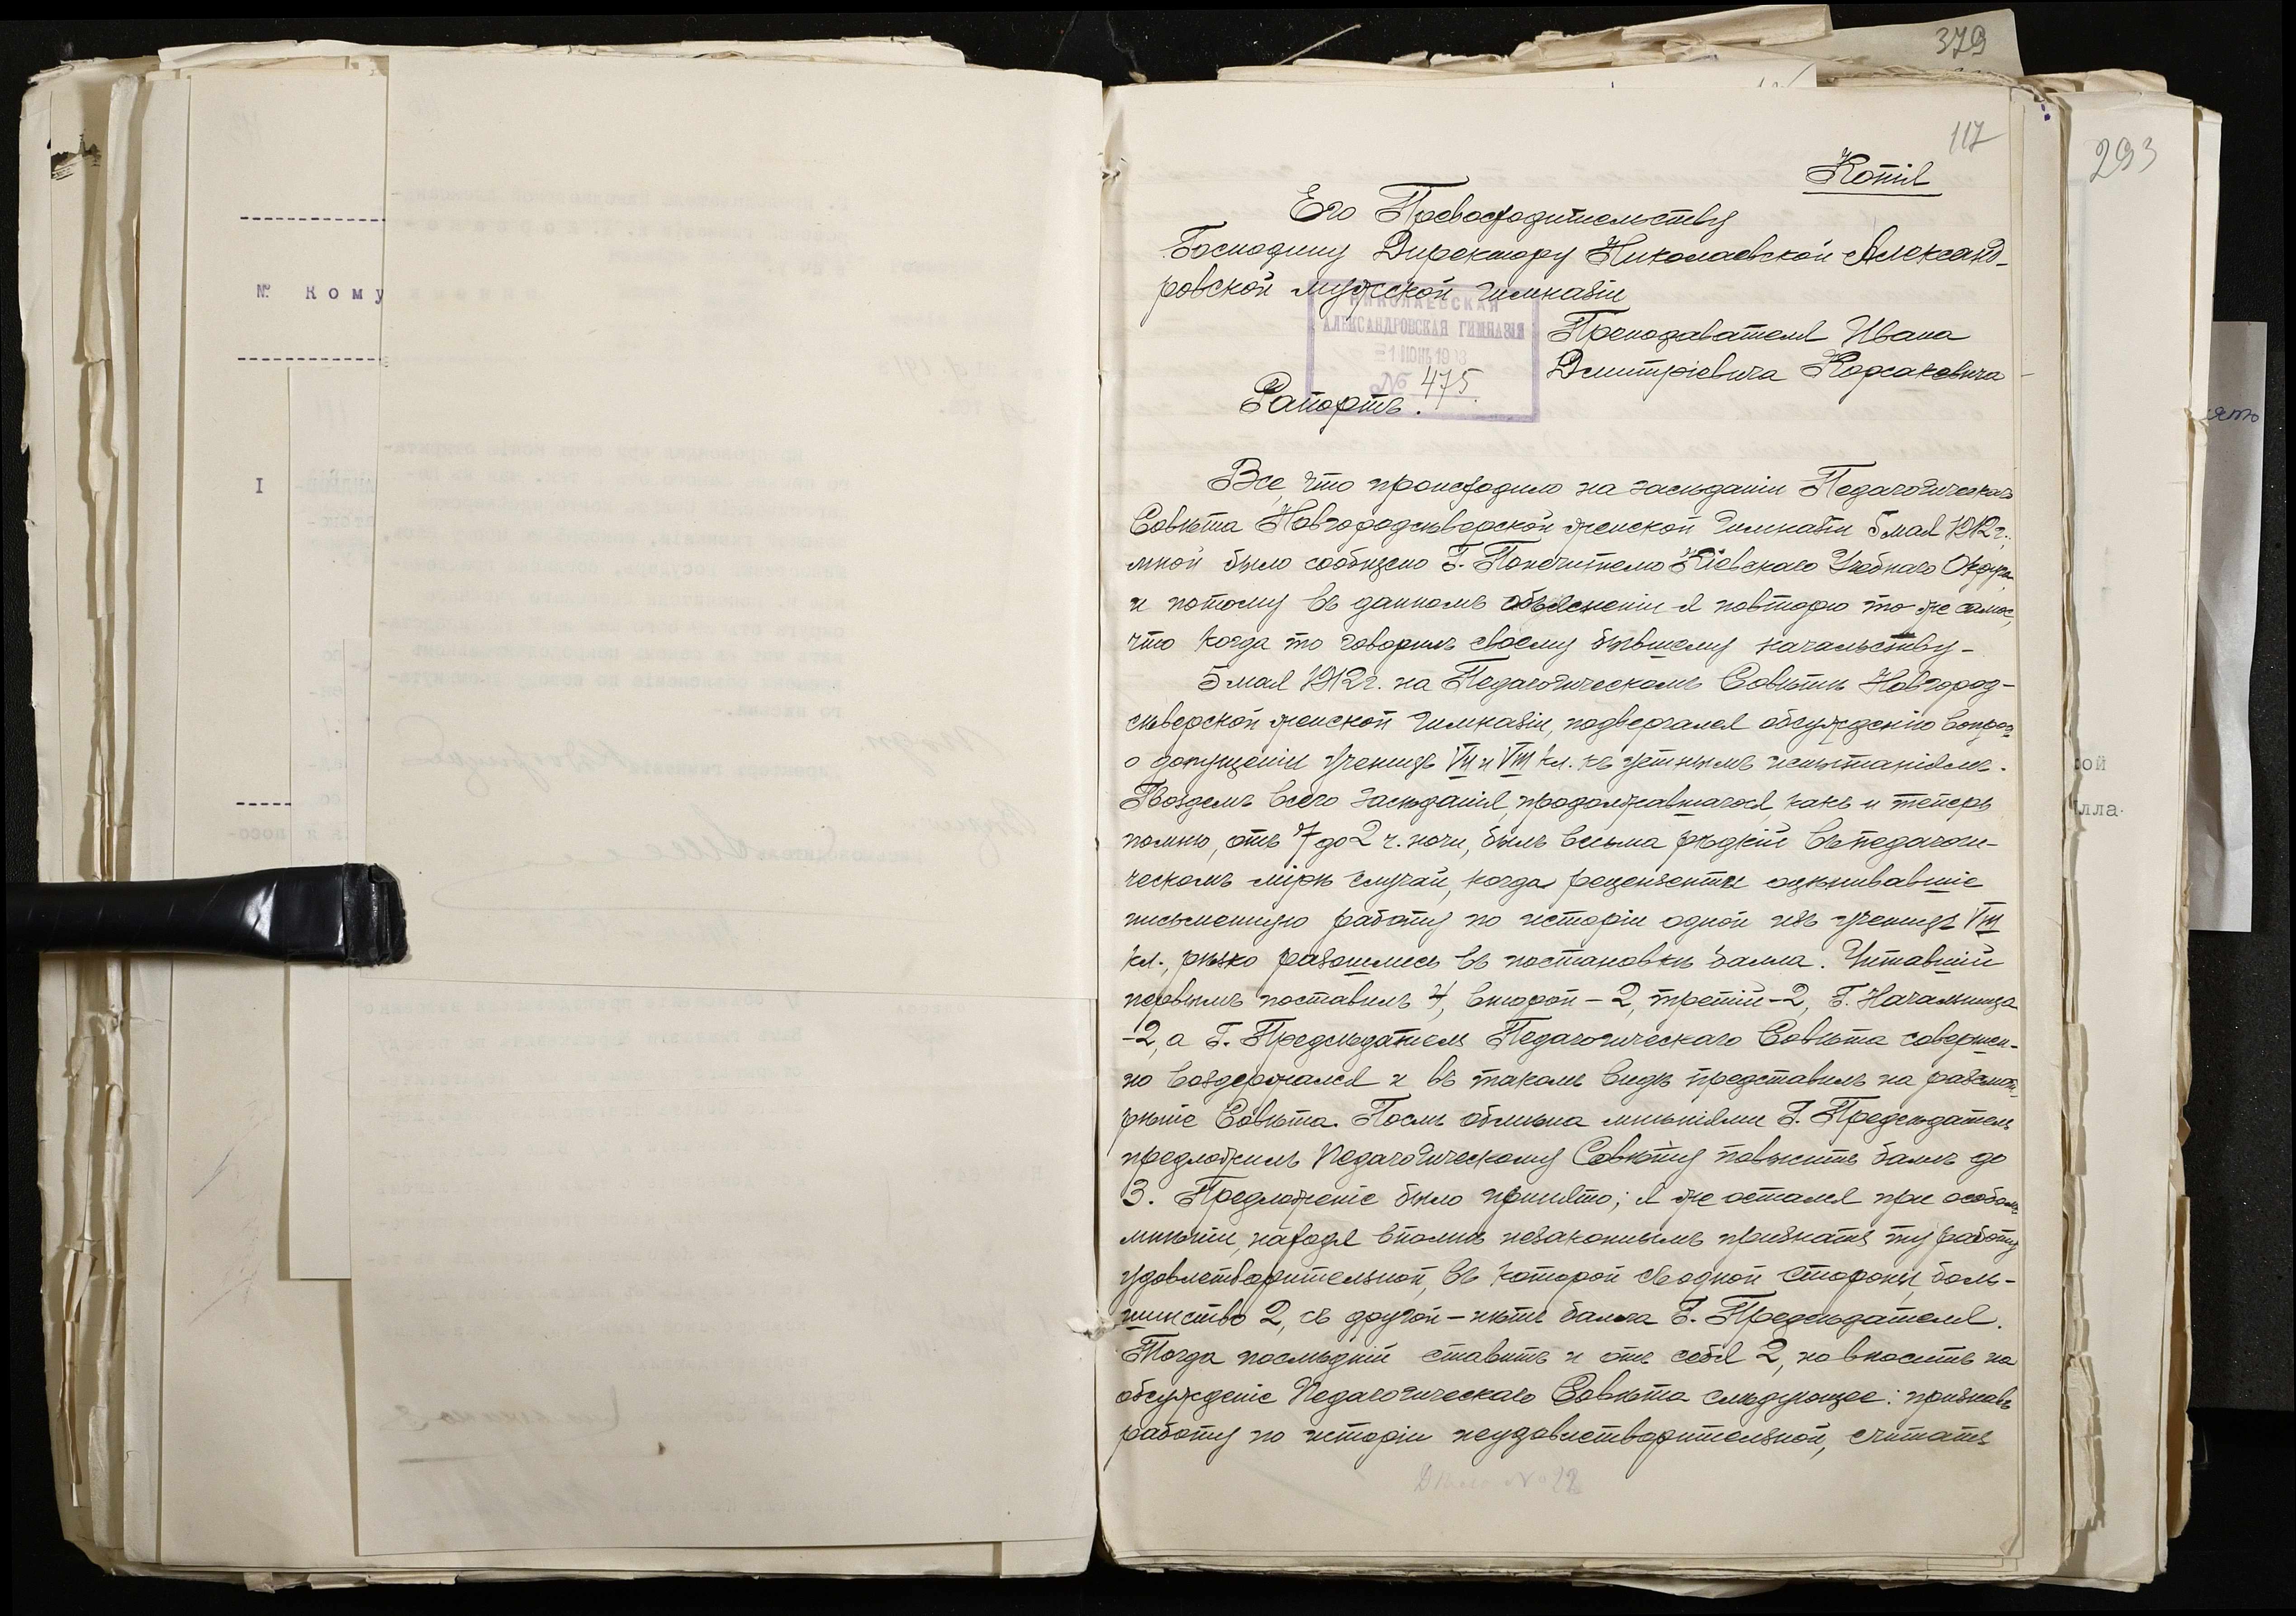 379
293
117
№ Кому
I
Копія
Его Превосходительству
Господину Директору Николаевской Александ-
ровской мужской гимназіи
НИКОЛАЕВСКАЯ
АЛЕКСАНДРОВСКАЯ ГИМНАЗІЯ
№ 475
Преподавателя Ивана
Дмитріевича Корсаковича
Рапортъ.
Все, что происходило на засѣданіи Педагогическаго
Совѣта Новгородсѣверской женской гимназіи 5 мая 1912 г.,
мной было сообщено Г. Попечителю Кіевскаго Учебнаго Округа
и потому въ данномъ объясненіи я повторю то же самое,
что когда то говорилъ своему бывшему начальству-
5 мая 1912 г. на Педагогическомъ Совѣтѣ Новгород-
сѣверской женской гимназіи, подвергался обсужденію вопросъ
о допущеніи ученицъ VII и VIII кл. къ устнымъ испытаніямъ.
Гвоздемъ всего засѣданія, продолжавшагося, какъ и теперь
помню, отъ 7 до 2 ч. ночи, былъ весьма рѣдкій въ педагоги-
ческомъ мірѣ случай, когда рецензенты оцѣнивавшіе
письменную работу по исторіи одной изъ ученицъ VIII
кл., рѣзко разошлись въ постановкѣ балла. Читавшій
первымъ поставилъ 4, второй - 2, третій - 2, Г. Начальница
- 2, а Г. Предсѣдатель Педагогическаго Совѣта совершен-
но воздержался и въ такомъ видѣ представилъ на разсмот-
рѣніе Совѣта. Послѣ обмѣна мнѣніями Г. Предсѣдатель
предложилъ Педагогическому Совѣту повысить баллъ до
3. Предложеніе было принято; я же остался при особомъ
мнѣніи, находя вполнѣ незаконнымъ признать ту работу
удовлетворительной, въ которой съ одной стороны, боль-
шинство 2, съ другой - нѣтъ балла Г. Предсѣдателя.
Тогда послѣдній ставитъ и отъ себя 2, но вноситъ на
обсужденіе Педагогическаго Совѣта слѣдующее: признавъ
работу по исторіи неудовлетворительной, считать
Дѣло № 22